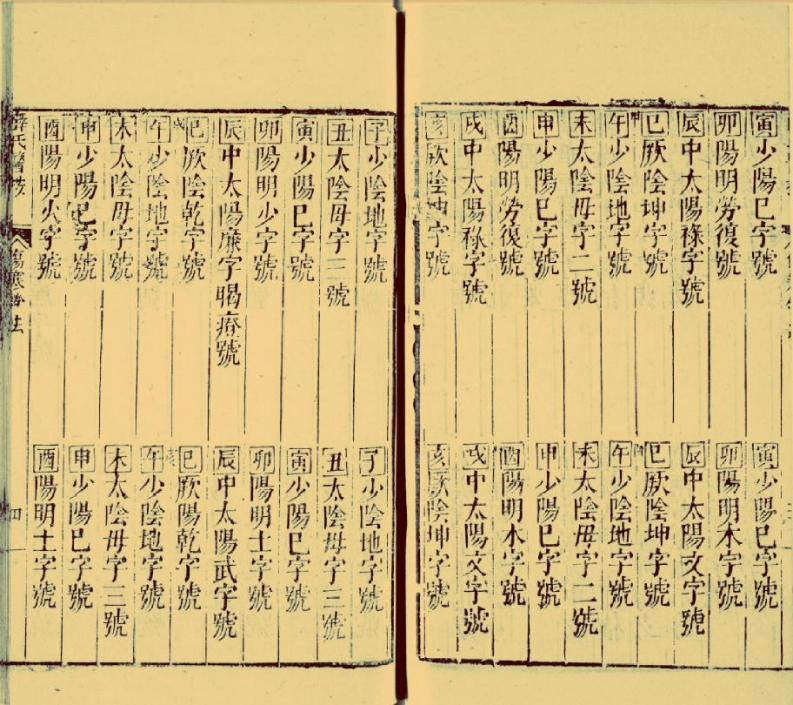 寅少陽巳字號 寅少陽巳字號
卯陽明勞復號 卯陽明木字號
辰中太陽祿字號 辰中太陽文字號
巳厥陰坤字號 巳厥陰坤字號
午少陰地字號 午少陰地字號
未太陰母字二號 未太陰母字二號
申少陽巳字號 申少陽巳字號
酉陽明勞復號 酉陽明木字號
戌中太陽祿字號 戌中太陽文字號
亥厥陰坤字號 亥厥陰坤字號
子少陰地字號 子少陰地字號
丑太陰母字三號 丑太陰母字三號
寅少陽巳字號 寅少陽巳字號
卯陽明少字號 卯陽明土字號
辰中太陽廉字暍瘵號 辰中太陽武字號
巳厥陰乾字號 巳厥陽乾字號
午少陰地字號 午少陰地字號
未太陰母字號 未太陰母字三號
申少陽巳字號 申少陽巳字號
酉陽明火字號 酉陽明土字號
薛氏醫按 傷寒鈐法 四